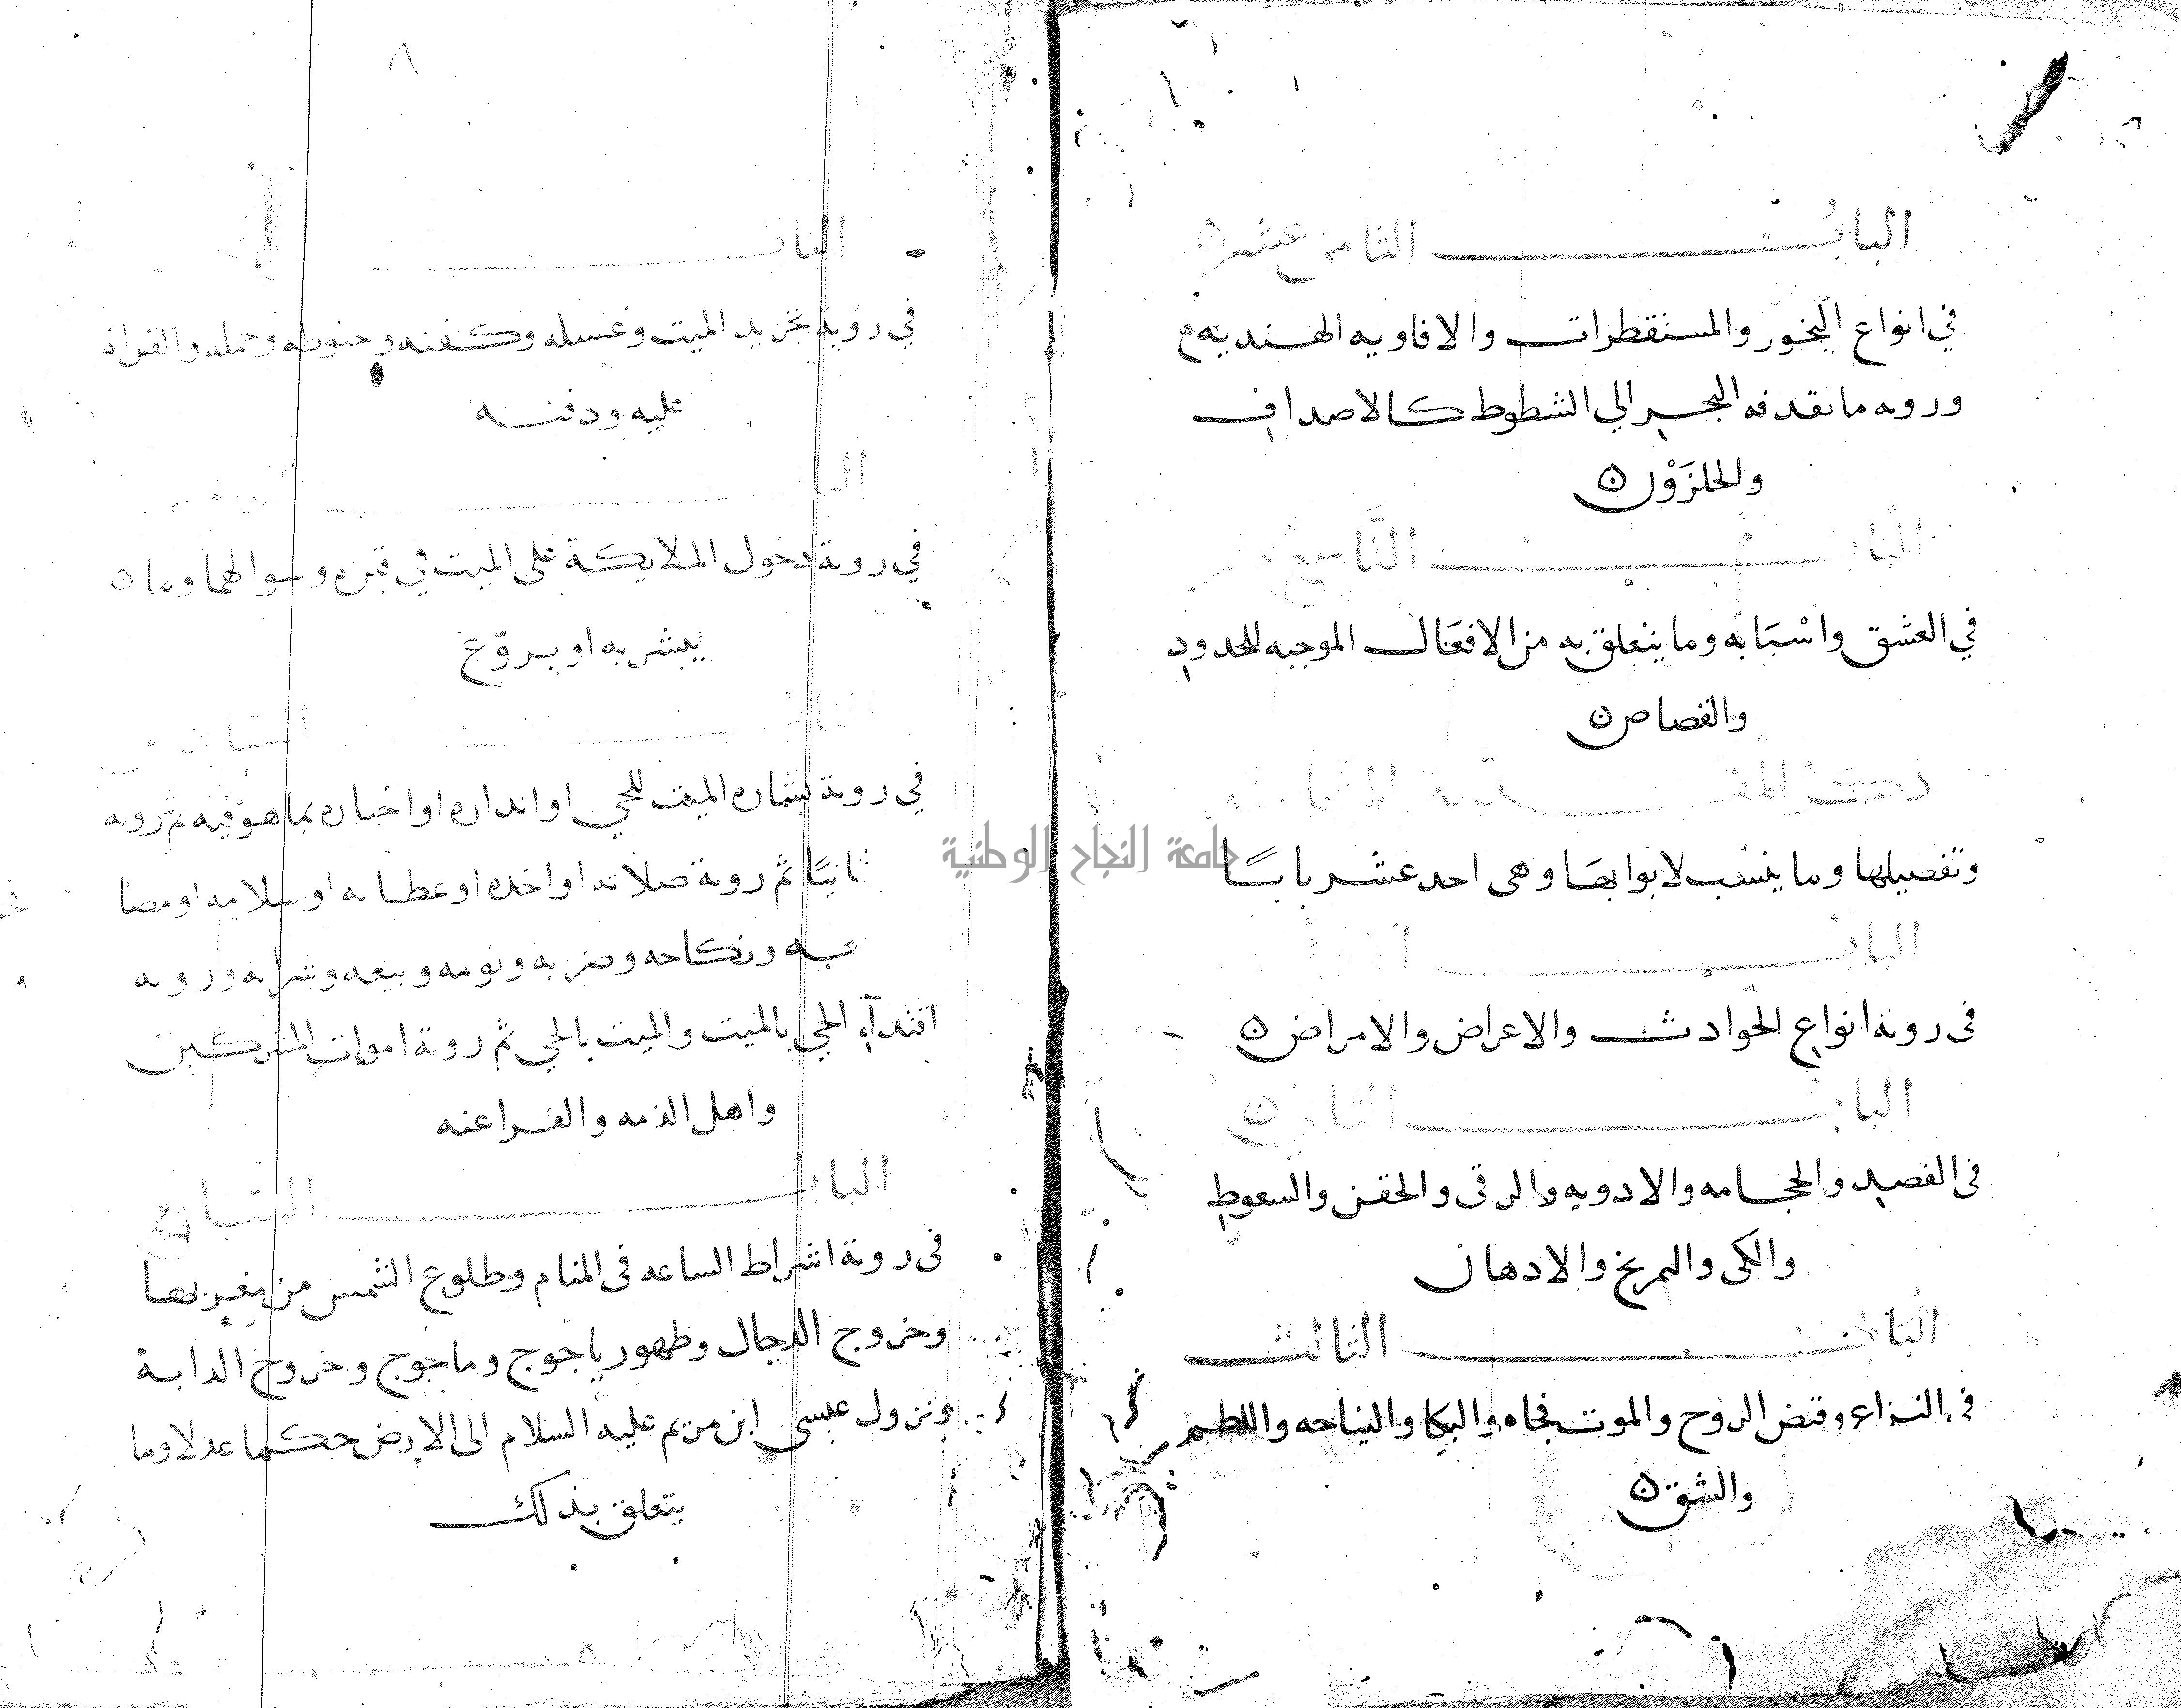 الباب الثامن عشر
في انواع البخور والمستقطرات والافاويه الهنديه
وروىه ما ىقدفه البحر الي الشطوط كالاصداف
والحلزَوْن
الباب التاسع
في العشق واسْبَابه وما يتعلق به من الافعَال الموجبه للحدود
والقصاص
وتفصيلها وما ينسب لابوابهَا وهى احد عشر بابًا
الباب
فى روىة انواع الحوادث والاعراض والامراض
الباب الثاني
فى الفصد والحجامه والادويه والرقى والحقن والسعوط
والكى والمريخ والادهان
الباب الثالث
في النزاع وقبض الروح والموت فجاه والبكا والنياحه واللطم
والشق
٨
الباب
في روية تجريد الميت وغسله وكفنه وحنوطه وحمله والقراة
عليه ودفنه
في روىة دخول الملايكة على الميت في قبره وسوالهما وما
يبشر به او يروّع
الباب
في روىة بشاره الميت للحي او انداره او اخباره بما هو فيه ثم روىه
ثانيًا ثم روىة صلاته او اخده او عطاىه او سلامه او مصا
به ونكاحه وضربه ونومه وبيعه وشراىه وروىه
اقتدآء الحي بالميت والميت بالحي ثم روىة اموات المشركين
واهل الذمه والفراعنه
الباب السابع
فى روىة اشراط الساعه فى المنام وطلوع الشمس من مغربها
وخروج الدجال وظهور ياجوج وماجوج وخروج الدابة
ونزول عيسى ابن مريم عليه السلام الى الارض حكما عدلا وما
يتعلق بذلك
جامعة النجاح الوطنية